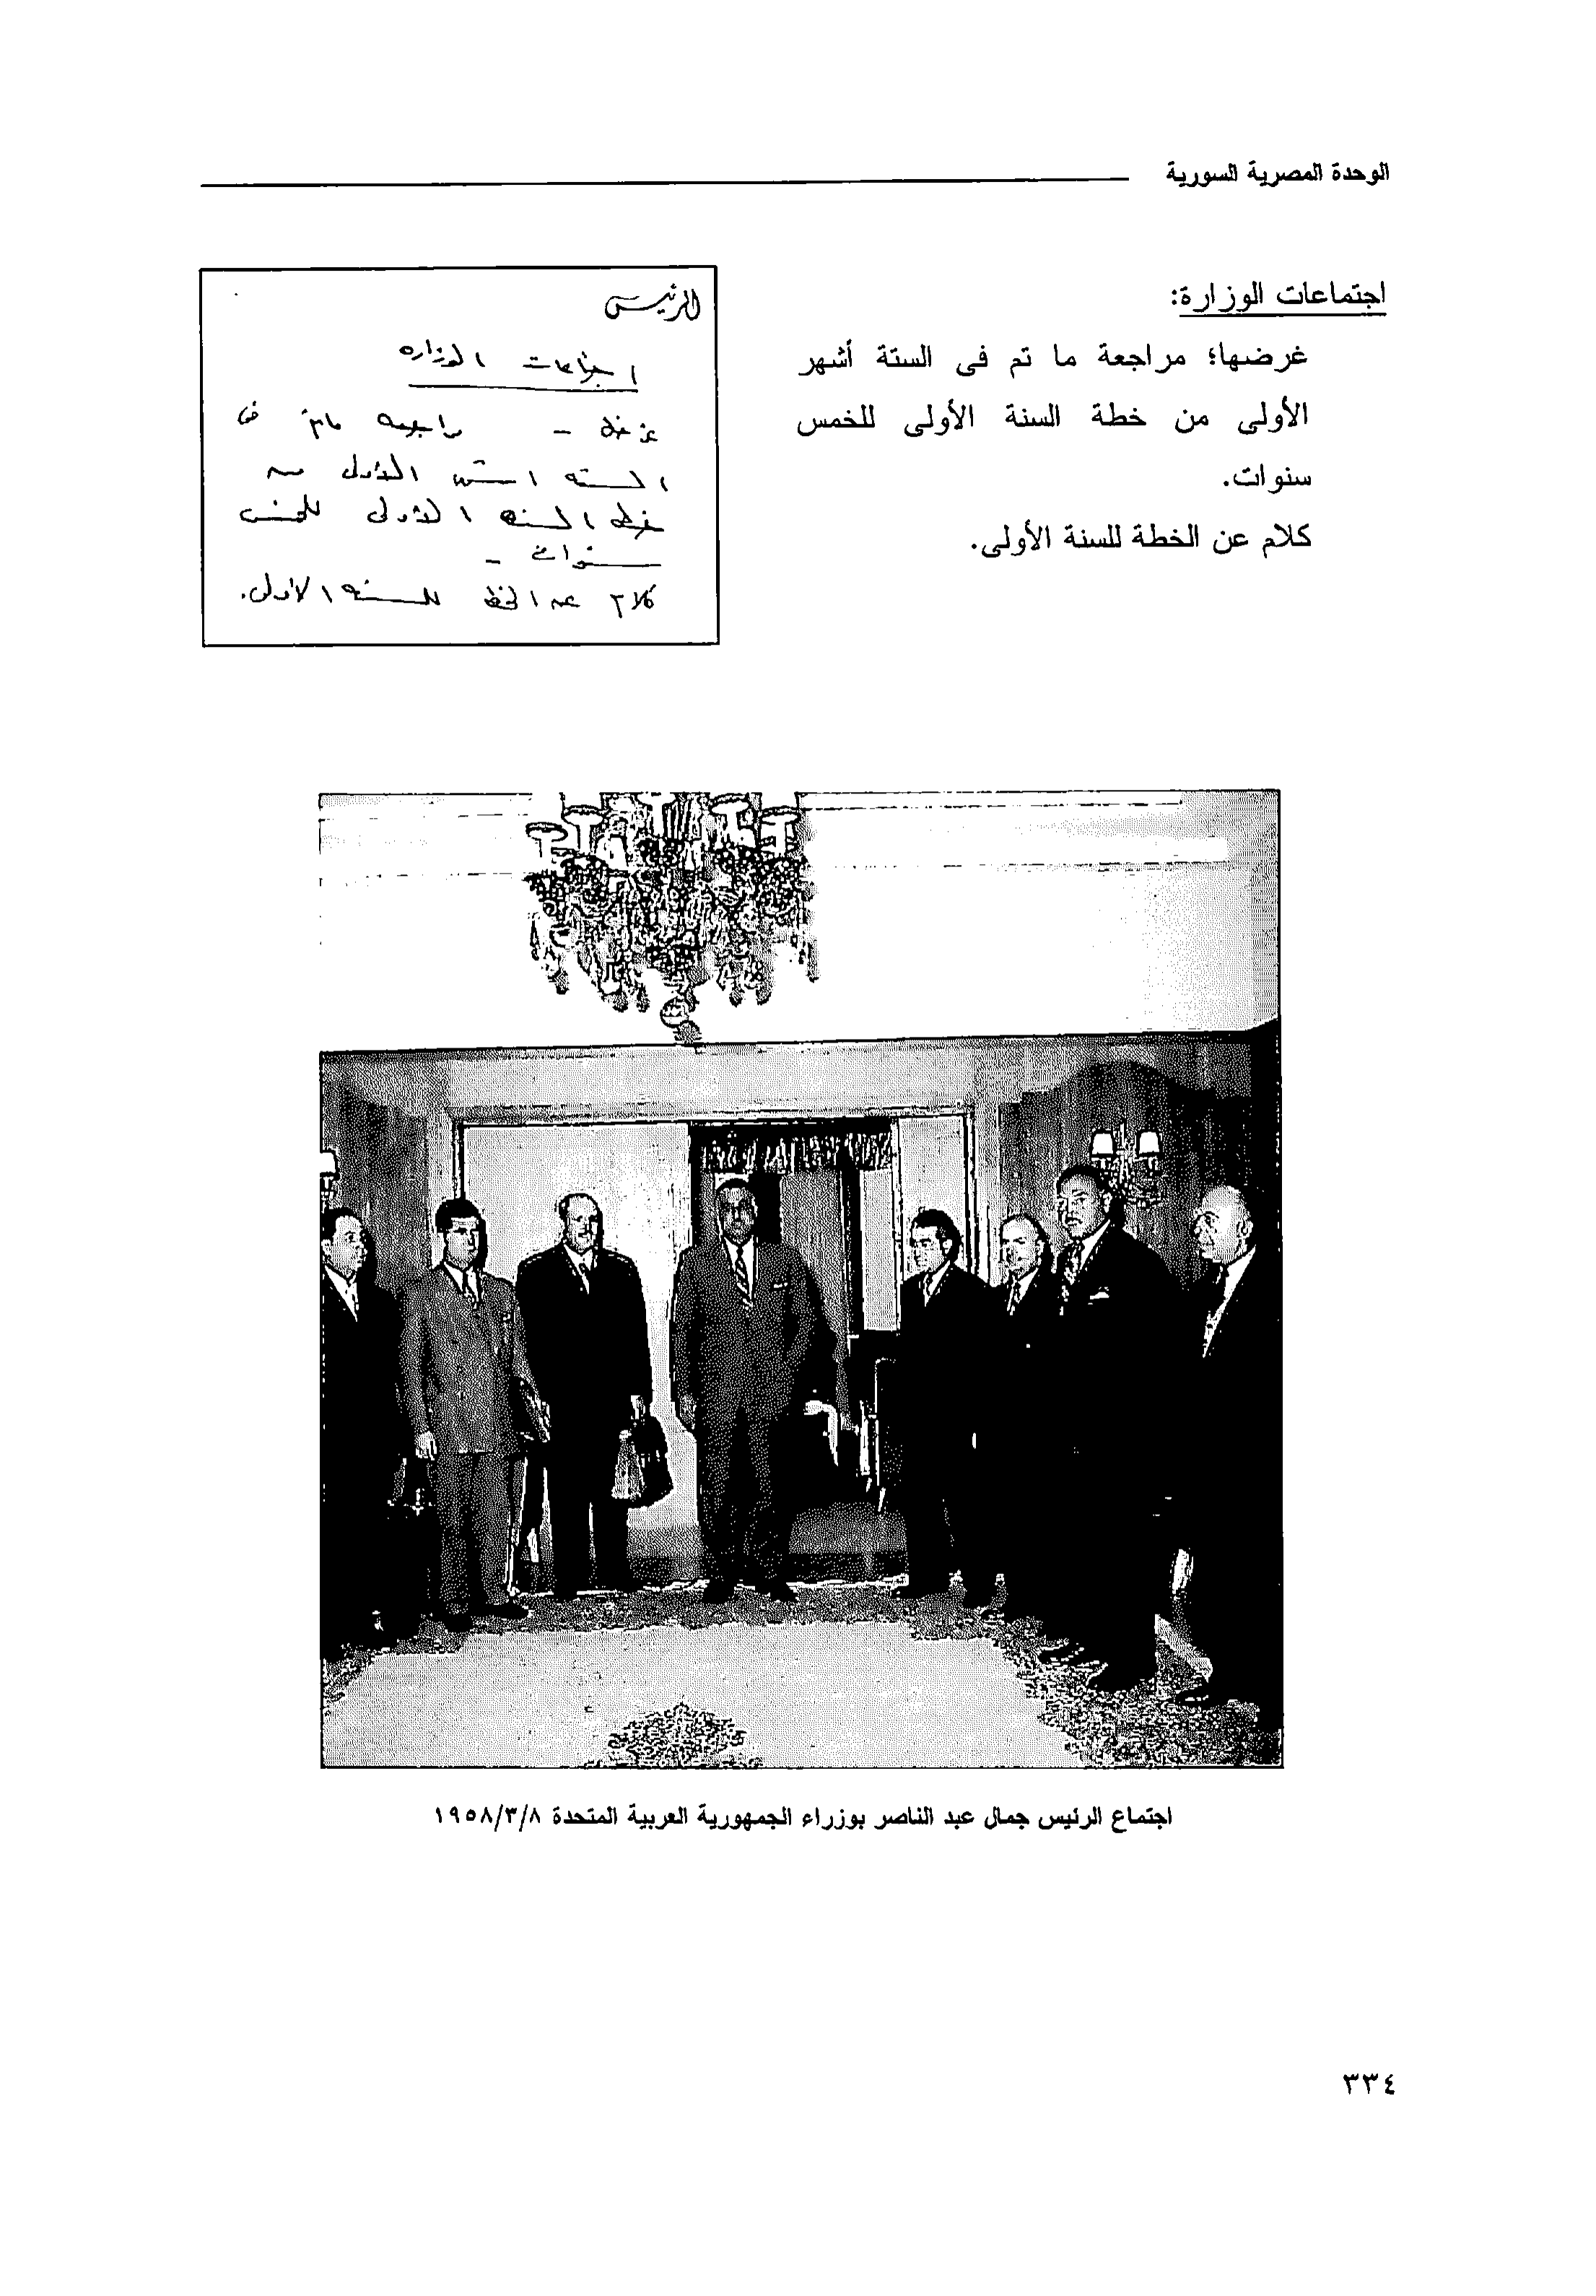 الوحدة المصرية السورية
اجتماعات الوزارة:
غرضها؛ مراجعة ما تم فى الستة أشهر
الأولى من خطة السنة الأولى للخمس
سنوات.
كلام عن الخطة للسنة الأولى.
الرئيس
اجتماعات الوزاره
غرضها - مراجعه ما تم فى
السته اشهر الأولى من
خطة السنه الأولى للخمس
سنوات -
كلام عن الخطه للسنه الأولى.
اجتماع الرئيس جمال عبد الناصر بوزراء الجمهورية العربية المتحدة ١٩٥٨/٣/٨
٣٣٤